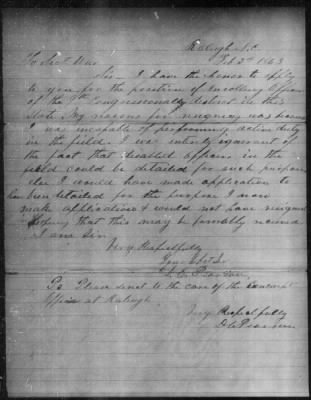 Raleigh N.C.
Feb 2d 1863
To Sect War
Sir I have the honor to apply
to you for the position of Enrolling Officer
of the Congressional district in this
State My reasons for resigning was because
I was incapable of performing active duty
in the field. I was entirely ignorant of
the fact that disabled officers in the
field could be detailed for such purpose
else I would have made application to
have been detailed for the purpose I now
make application & would not have resigned
Hoping that this may be favorably received
I am Sir
Very Respectfully
Your Obt
Pearson
Ps Please direct to the care of the Conscript
Office at Raleigh
Very Respectfully
Pearson